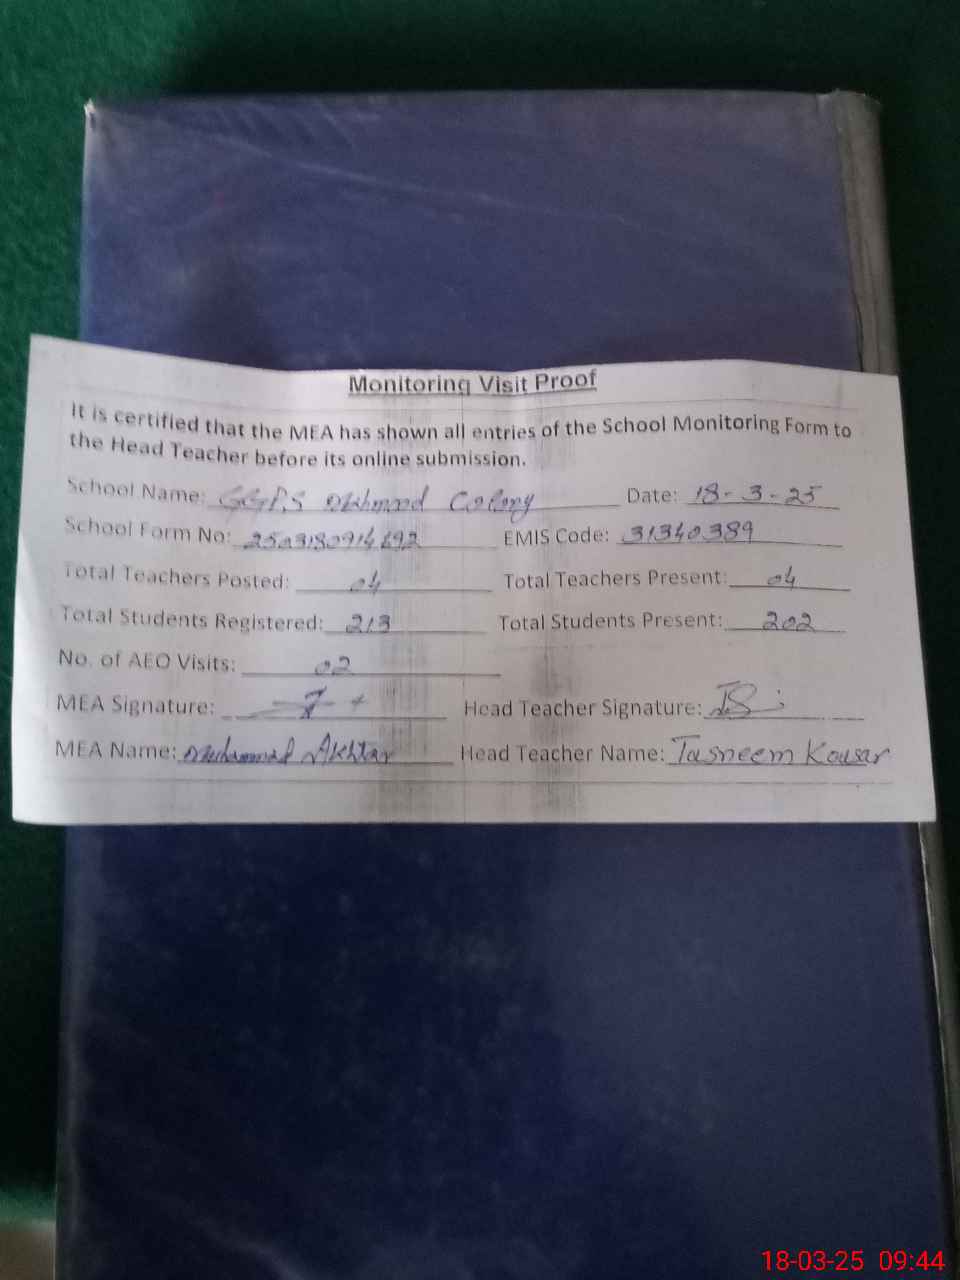 Monitoring Visit Proof
It is certified that the MEA has shown all entries of the School Monitoring Form to
the Head Teacher before its online submission.
School Name: GGPS Mehmood Colony Date: 18-3-25
School Form No: EMIS Code: 31340389
Total Teachers Posted: 04 Total Teachers Present: 04
Total Students Registered: 213 Total Students Present: 202
No. of AEO Visits: 02
MEA Signature: Head Teacher Signature:
MEA Name: Muhammad Akhtar Head Teacher Name: Tasneem Kousar
18-03-25 09:44